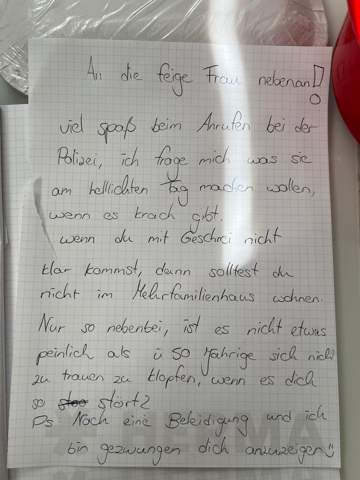 An die feige Frau nebenan!
viel spaß beim Anrufen bei der
Polizei, ich frage mich was sie
am hellichten Tag machen wollen,
wenn es krach gibt.
wenn du mit Geschrei nicht
klar kommst, dann solltest du
nicht im Mehrfamilienhaus wohnen.
Nur so nebenbei, ist es nicht etwas
peinlich als ü 50 Jährige sich nicht
zu trauen zu klopfen, wenn es dich
so stört?
Ps Noch eine Beleidigung und ich
bin gezwungen dich anzuzeigen☺